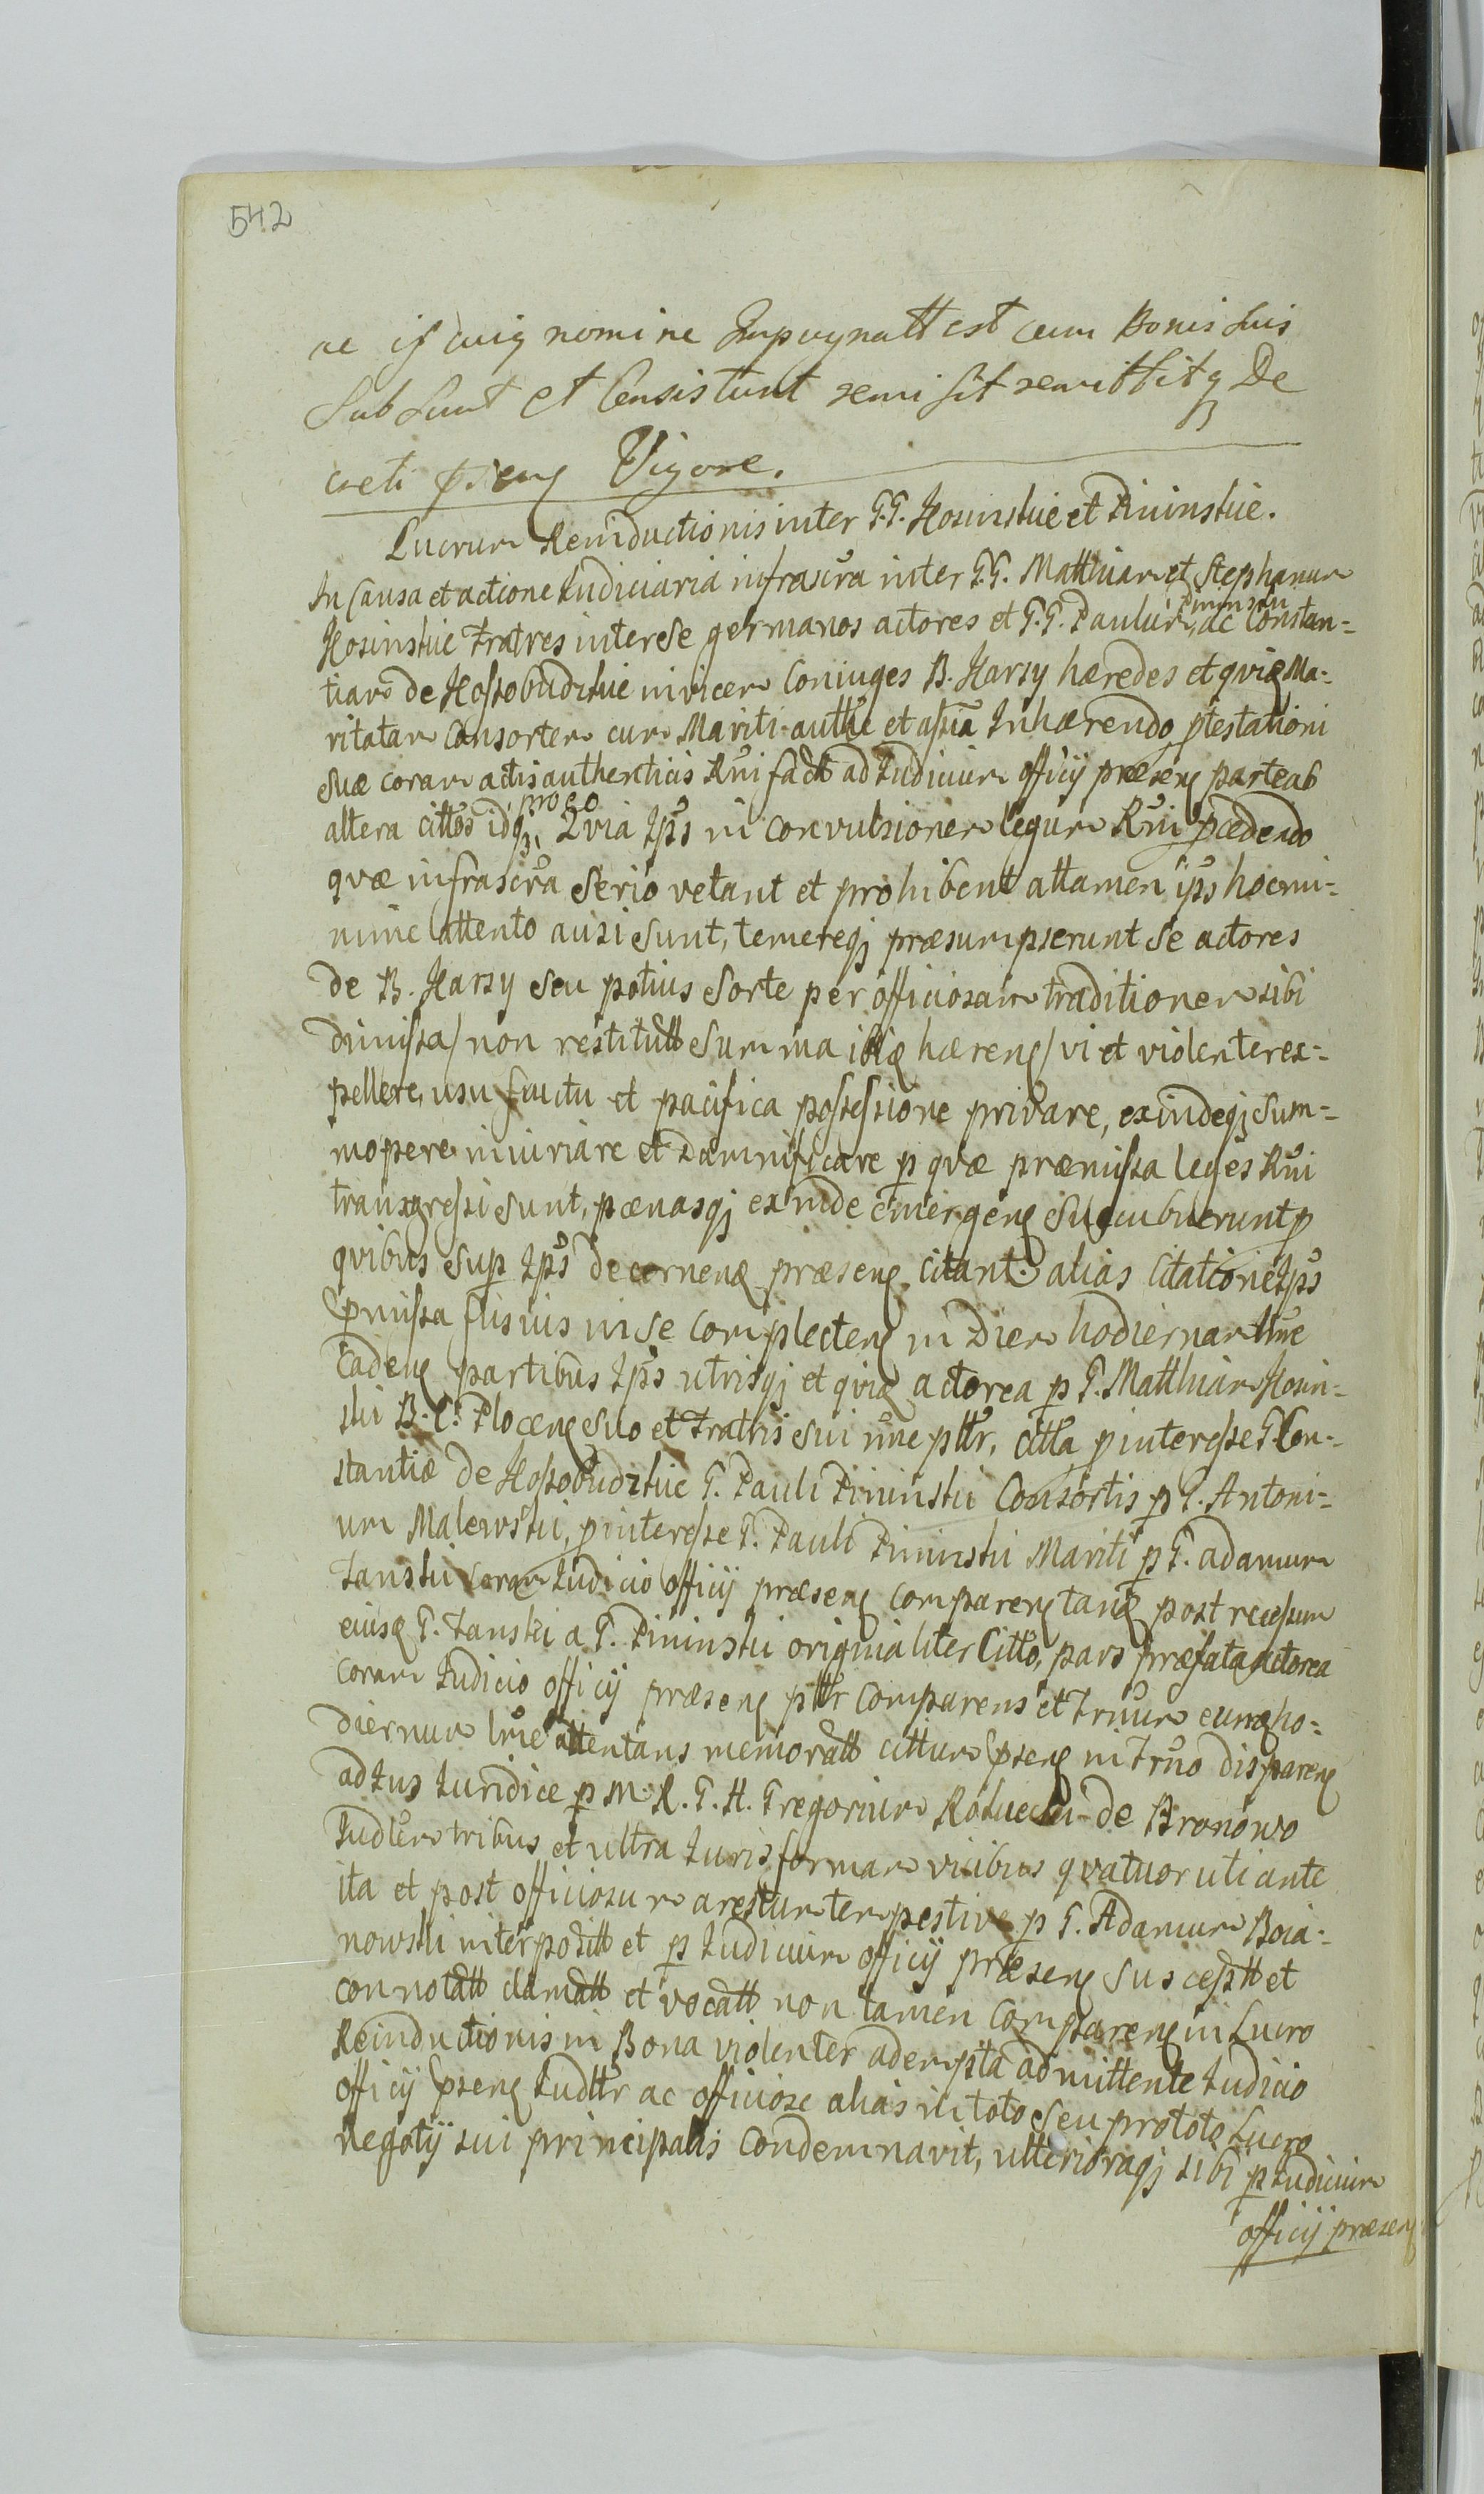 542
ac is cuig nomine Impugnatt est cum Bonis suis
subsunt et Consistunt remisit remittitq De
creti pseng Vigore.
Lucrum Reinductionis inter G.G. Kosinskie et Pininskie.
In Causa et actione Iudiciaria infrascra inter G.G. Matthiam et Stephanum
Kosinskie Fratres inter se germanos actores et G.G. Paulum Pininski ac Constan=
tiam de Kossobudzkie invicem Coniuges B. Karsy hæredes et qviq Ma=
ritatam Consortem cum Mariti authe et assia Inhærendo ptestationi
suæ coram actis authenticis Rni factt ad Iudicium officÿ præseng parte ab
altera cittos idqj pro eo, Qvia Ips in convulsionem legum Rni pcedendo
qvæ infrascra serio vetant et prohibent attamen ips hoc mi=
nime attento ausi sunt, temereqj præsumpserunt se actores
de B. Karsy seu potius sorte per officiosam traditionem sibi
dimissa/ non restitutt summa ibiq hæreng/ vi et violenter ex=
pellere, usu fructu et pacifica possessione privare, exindeqj sum=
mopere iniuriare et damnificare p qvæ præmissa leges Rni
transgressi sunt, pænasqj exinde emergeng succubuerunt p
qvibus sup Ips decerneng præseng citant. alias Citatione Ips
pmissa flisius in se complecteng in Diem hodiernam llme
cadeng partibus Ips utrisqj et qviq actorea p G. Matthiam Kosin=
ski B. C. Ploceng suo et Fratris sui nne pttr, citta p interesse G. Con=
stantiæ de Kossobudzkie G. Pauli Pininski Consortis p G. Antoni=
um Malewski, p interesse G. Pauli Pininski Mariti p G. adamum
Zanski coram Iudicio officÿ præseng compareng tanq post recessum
eiusq G. Zanski a G. Pininski originaliter Citto, pars præfata actorea
coram Iudicio officÿ præseng pttr comparens et Trnum eumq ho=
diernum lme attentans memoratt cittum pseng in Trno dispareng
ad Ius Iuridice p M. R. G. H. Gregorium Rościecki de Bronowo
Iudlem tribus et ultra Iuris formam vicibus qvatuor uti ante
ita et post officiosum arestum tempestive p G. Adamum Boia=
nowski interpositt et p Iudicium officÿ præseng susceptt et
connotatt clamatt et vocatt non tamen compareng in Lucro
Reinductionis in Bona violenter adempta admittente Iudicio
officÿ pseng Iudttr ac officiose alias in toto seu pro toto Lucro
negotÿ sui principalis condemnavit, ulterioraqj sibi p Iudicium
officÿ præseng